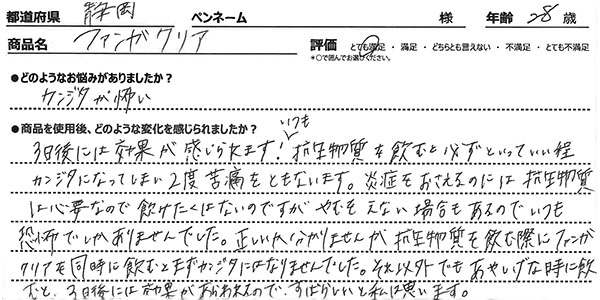 都道府県 静岡 ペンネーム 様 年齢 28 歳
商品名 ファンガクリア 評価 とても満足 ・ 満足 ・ どちらとも言えない ・ 不満足 ・ とても不満足
*○で囲んでお選びください。
●どのようなお悩みがありましたか?
カンジタが怖い
●商品を使用後、どのような変化を感じられましたか?
いつも
3日後には効果が感じられます! 抗生物質を飲むと必ずといっていい程
カンジタになってしまい2度苦痛をともないます。炎症をおさえるのには抗生物質
は必要なので飲けたくはないのですがやむをえない場合もあるのでいつも
恐怖でしかありませんでした。正しいか分かりませんが抗生物質を飲む際にファンガ
クリアを同時に飲むとまずカンジタにはなりませんでした。それ以外でもあやしげな時に飲
むと、3日後には効果があらわれるので、すばらしいと私は思います。